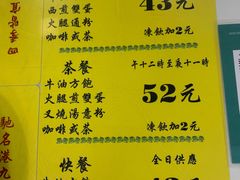 西煎雙蛋
火腿通粉
咖啡或茶
43元
凍飲加2元
茶餐
午十二時至夜十一時
牛油方飽
火腿煎雙蛋
叉燒湯意粉
咖啡或茶
52元
凍飲加2元
快餐
全日供應
馳名港九